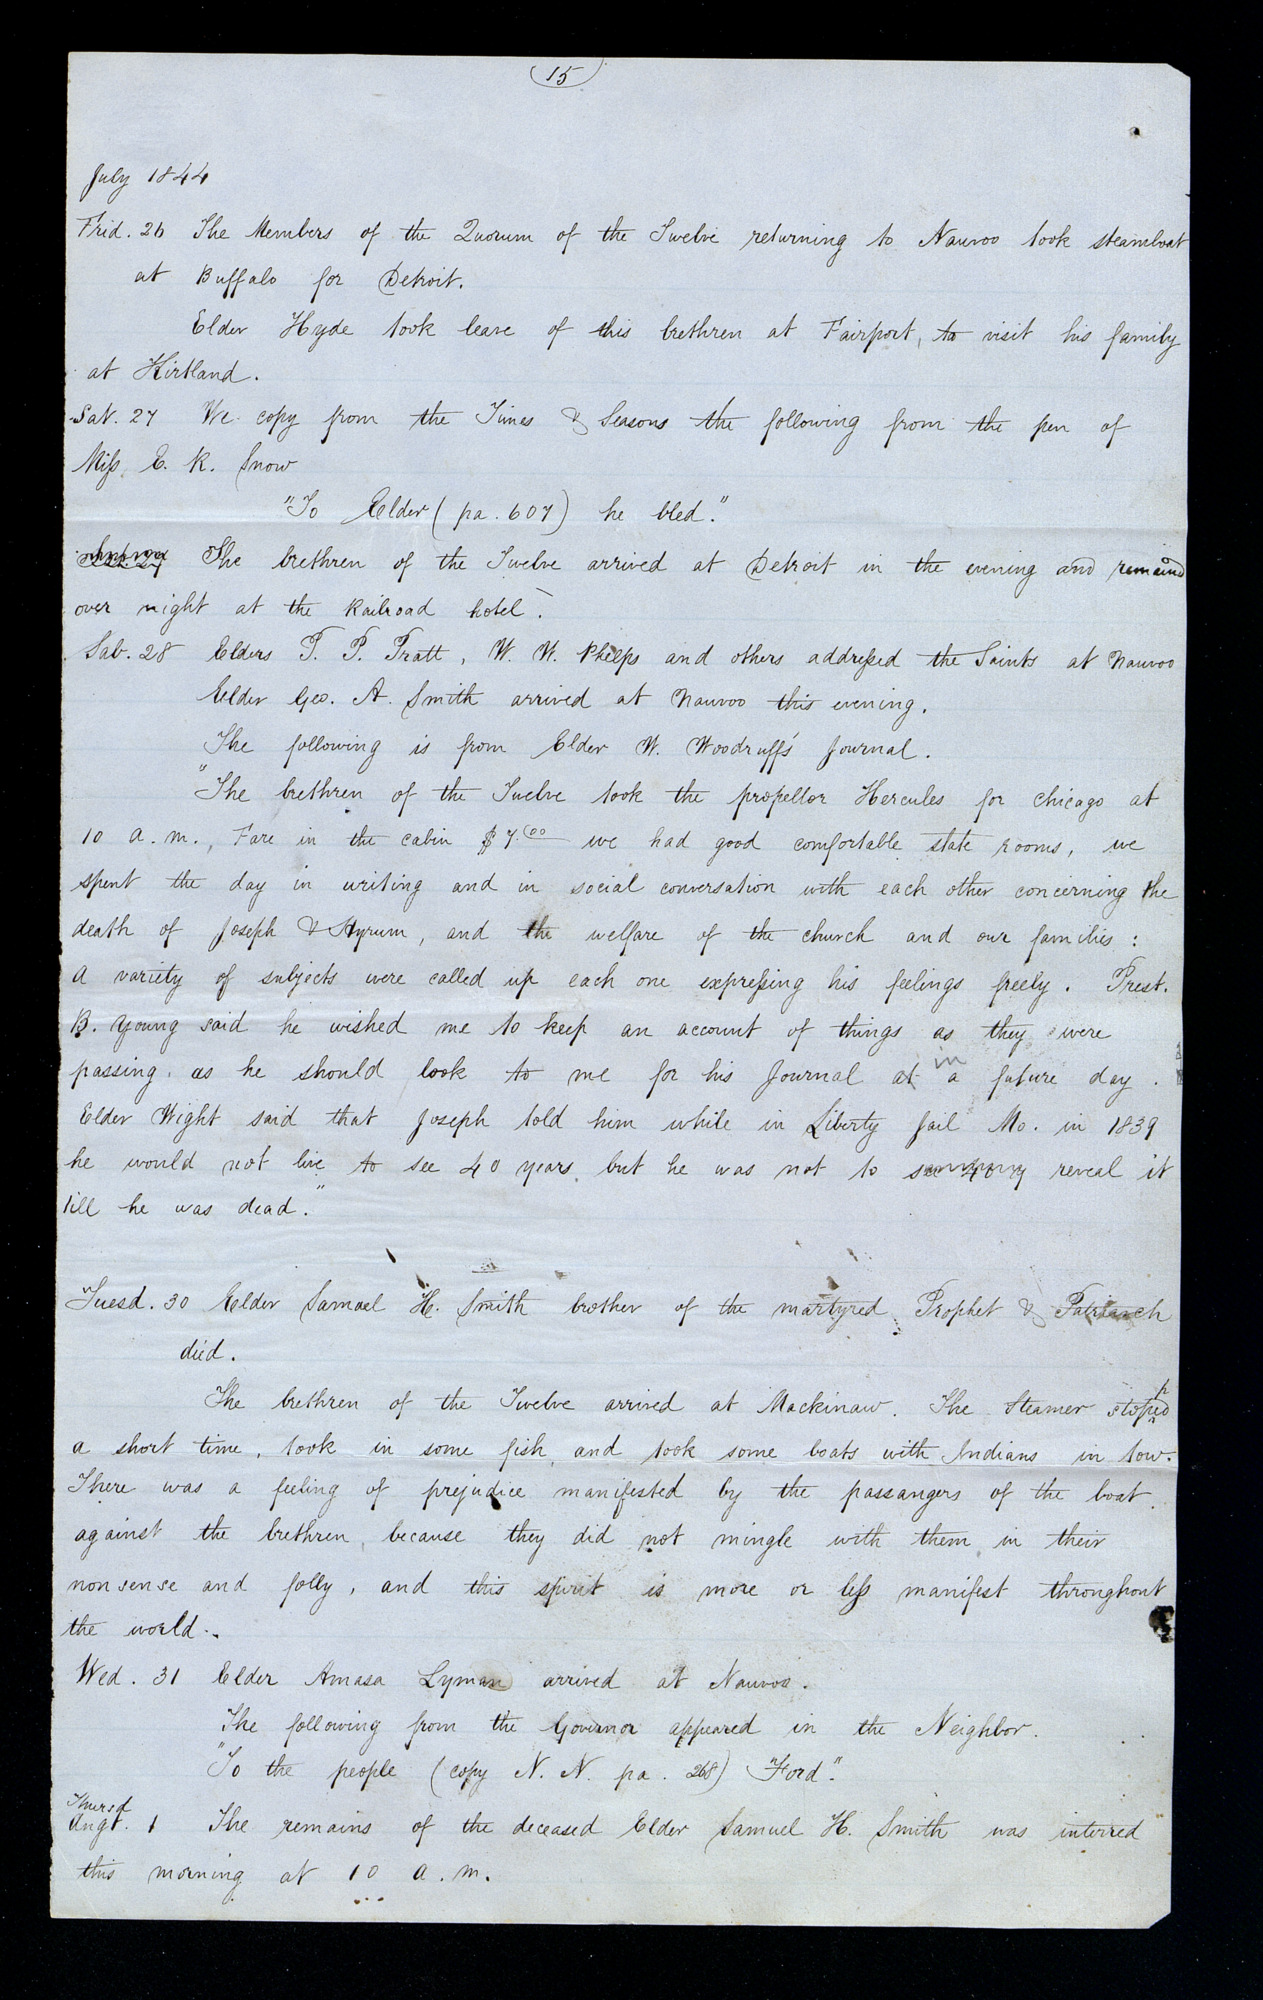 15
July 1844
Frid. 26 The Members of the Quorum of the Twelve returning to Nauvoo took steamboat
at Buffalo for Detroit.
Elder Hyde took leave of this brethren at Fairport, to visit his family
at Kirtland.
Sat. 27 We copy from the Times & Seasons the following from the pen of
Miss E. R. Snow
"To Elder (pa. 607) he bled."
The brethren of the Twelve arrived at Detroit in the evening and remained
over night at the Railroad hotel.
Sab. 28 Elders P. P. Pratt, W. W. Phelps and others addressed the Saints at Nauvoo
Elder Geo. A. Smith arrived at Nauvoo this evening.
The following is from Elder W. Woodruff's Journal.
"The brethren of the Twelve took the propellor Hercules for Chicago at
10 a.m., Fare in the cabin $7.00 we had good comfortable state rooms, we
spent the day in writing and in social conversation with each other concerning the
death of Joseph & Hyrum, and the welfare of the church and our families:
a variety of subjects were called up each one expressing his feelings freely. Prest.
B. Young said he wished me to keep an account of things as they were
passing, as he should look to me for his Journal at in a future day.
Elder Wight said that Joseph told him while in Liberty Jail Mo. in 1839
he would not live to see 40 years, but he was not to see 40 y reveal it
till he was dead."
Tuesd. 30 Elder Samael H. Smith brother of the martyred Prophet & Patriarch
died.
The brethren of the Twelve arrived at Mackinaw. The Steamer stopped
a short time, took in some fish, and took some boats with Indians in tow.
There was a feeling of prejudice manifested by the passangers of the boat
against the brethren, because they did not mingle with them in their
nonsense and folly, and this spirit is more or less manifest throughout
the world.
Wed. 31 Elder Amasa Lyman arrived at Nauvoo.
The following from the Governor appeared in the Neighbor.
"To the people (copy N. N. pa. 268) "Ford".
Thursd
Augt. 1 The remains of the deceased Elder Samuel H. Smith was interred
this morning at 10 a.m.